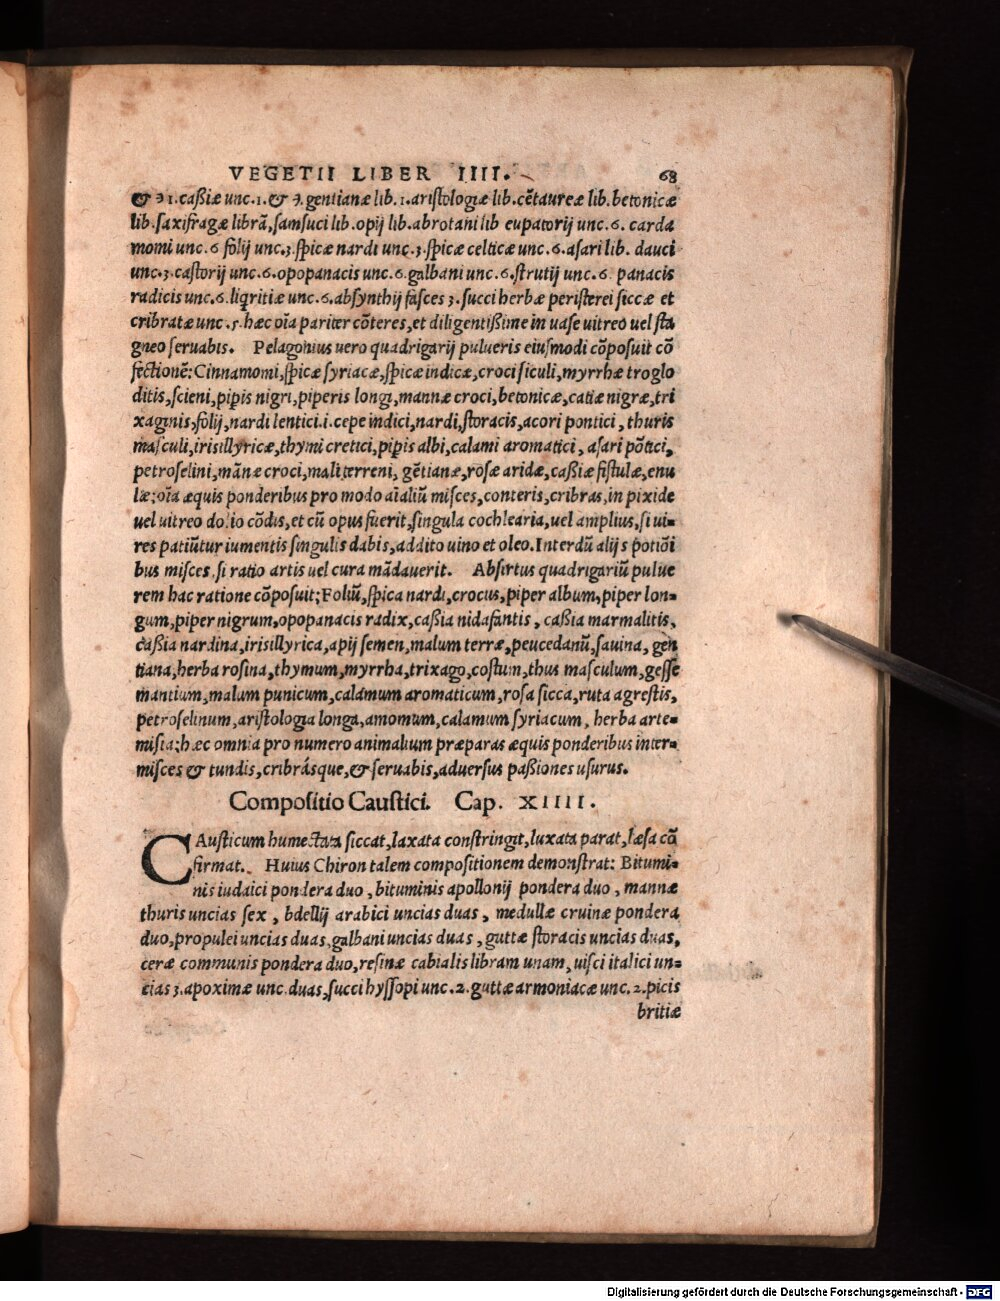 VEGETII LIBER IIII. 68
& ℈ 1. caßiæ unc. 1. & ʒ. gentianæ lib. 1. aristologiæ lib. cẽtaureæ lib. betonicæ
lib. saxifragæ librã, samsuci lib. opij lib. abrotani lib eupatorij unc. 6. carda
momi unc. 6 folij unc. 3. spicæ nardi unc. 3. spicæ celticæ unc. 6. asari lib. dauci
unc. 3. castorij unc. 6. opopanacis unc. 6. galbani unc. 6. strutij unc. 6. panacis
radicis unc. 6. liqritiæ unc. 6. absynthij fasces 3. succi herbæ peristerei siccæ et
cribratæ unc. 5. hæc oĩa pariter cõteres, et diligentißime in uase uitreo uel sta
gneo seruabis. Pelagonius uero quadrigarij pulueris eiusmodi cõposuit cõ
fectionẽ: Cinnamomi, spicæ syriacæ, spicæ indicæ, croci siculi, myrrhæ troglo
ditis, scieni, pipis nigri, piperis longi, mannæ croci, betonicæ, catiæ nigræ, tri
xaginis, folij, nardi lentici. i. cepe indici, nardi, storacis, acori pontici, thuris
masculi, irisillyricæ, thymi cretici, pipis albi, calami aromatici, asari põtici,
petroselini, mãnæ croci, mali terreni, gẽtianæ, rosæ aridæ, caßiæ fistulæ, enu
læ: oĩa æquis ponderibus pro modo aĩaliũ misces, conteris, cribras, in pixide
uel uitreo dolio cõdis, et cũ opus fuerit, singula cochlearia, uel amplius, si ui=
res patiũtur iumentis singulis dabis, addito uino et oleo. Interdũ alijs potiõi
bus misces, si ratio artis uel cura mãdauerit. Absirtus quadrigariũ pulue
rem hac ratione cõposuit; Foliũ, spica nardi, crocus, piper album, piper lon=
gum, piper nigrum, opopanacis radix, caßia nidafantis, caßia marmalitis,
caßia nardina, irisillyrica, apij semen, malum terræ, peucedanũ, sauina, gen
tiana, herba rosina, thymum, myrrha, trixago, costum, thus masculum, gesse
mantium, malum punicum, calamum aromaticum, rosa sicca, ruta agrestis,
petroselinum, aristologia longa, amomum, calamum syriacum, herba arte=
misia; hæc omnia pro numero animalium præparas æquis ponderibus inter=
misces & tundis, cribrásque, & seruabis, aduersus paßiones usurus.
Compositio Caustici. Cap. XIIII.
CAusticum humectata siccat, laxata constringit, luxata parat, læsa cõ
firmat. Huius Chiron talem compositionem demonstrat: Bitumi=
nis iudaici pondera duo, bituminis apollonij pondera duo, mannæ
thuris uncias sex, bdellij arabici uncias duas, medullæ cruinæ pondera
duo, propulei uncias duas, galbani uncias duas, guttæ storacis uncias duas,
ceræ communis pondera duo, resinæ cabialis libram unam, uisci italici un=
cias 3. apoximæ unc. duas, succi hyssopi unc. 2. guttæ armoniacæ unc. 2. picis
britiæ
Digitalisierung gefördert durch die Deutsche Forschungsgemeinschaft - DFG